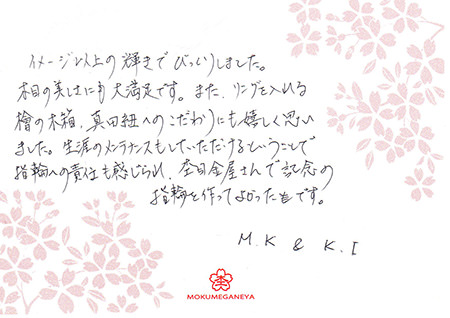 イメージ以上の輝きでびっくりしました。
木目の美しさにも大満足です。また、リングを入れる
檜の木箱、真田紐へのこだわりにも嬉しく思い
ました。生涯のメンテナンスもしていただけるということで
指輪への責任も感じられ、杢目金屋さんで記念の
指輪を作ってよかったです。
M.K & K.I
杢
MOKUMEGANEYA